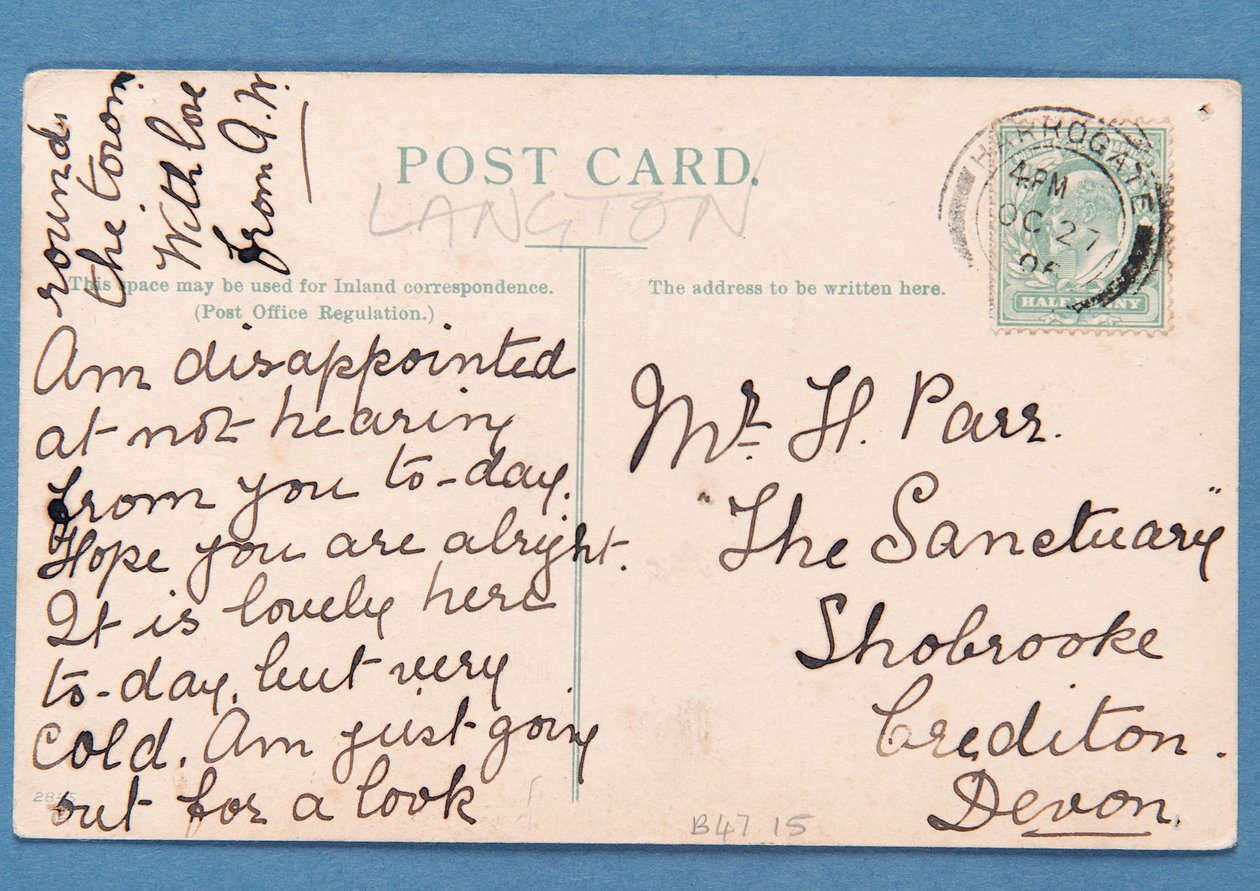 POST CARD.
LANGTON
This space may be used for Inland correspondence.
(Post Office Regulation.)
The address to be written here.
HARROGATE
4 PM
OC 27
HALFPENNY
Am disappointed
at not hearing
from you to-day.
Hope you are alright.
It is lovely here
to-day, but very
cold. Am just going
out for a look
round
the town.
With love
from A.W.
Mr. H. Parr.
"The Sanctuary"
Shobrooke
Crediton.
Devon.
B47 15